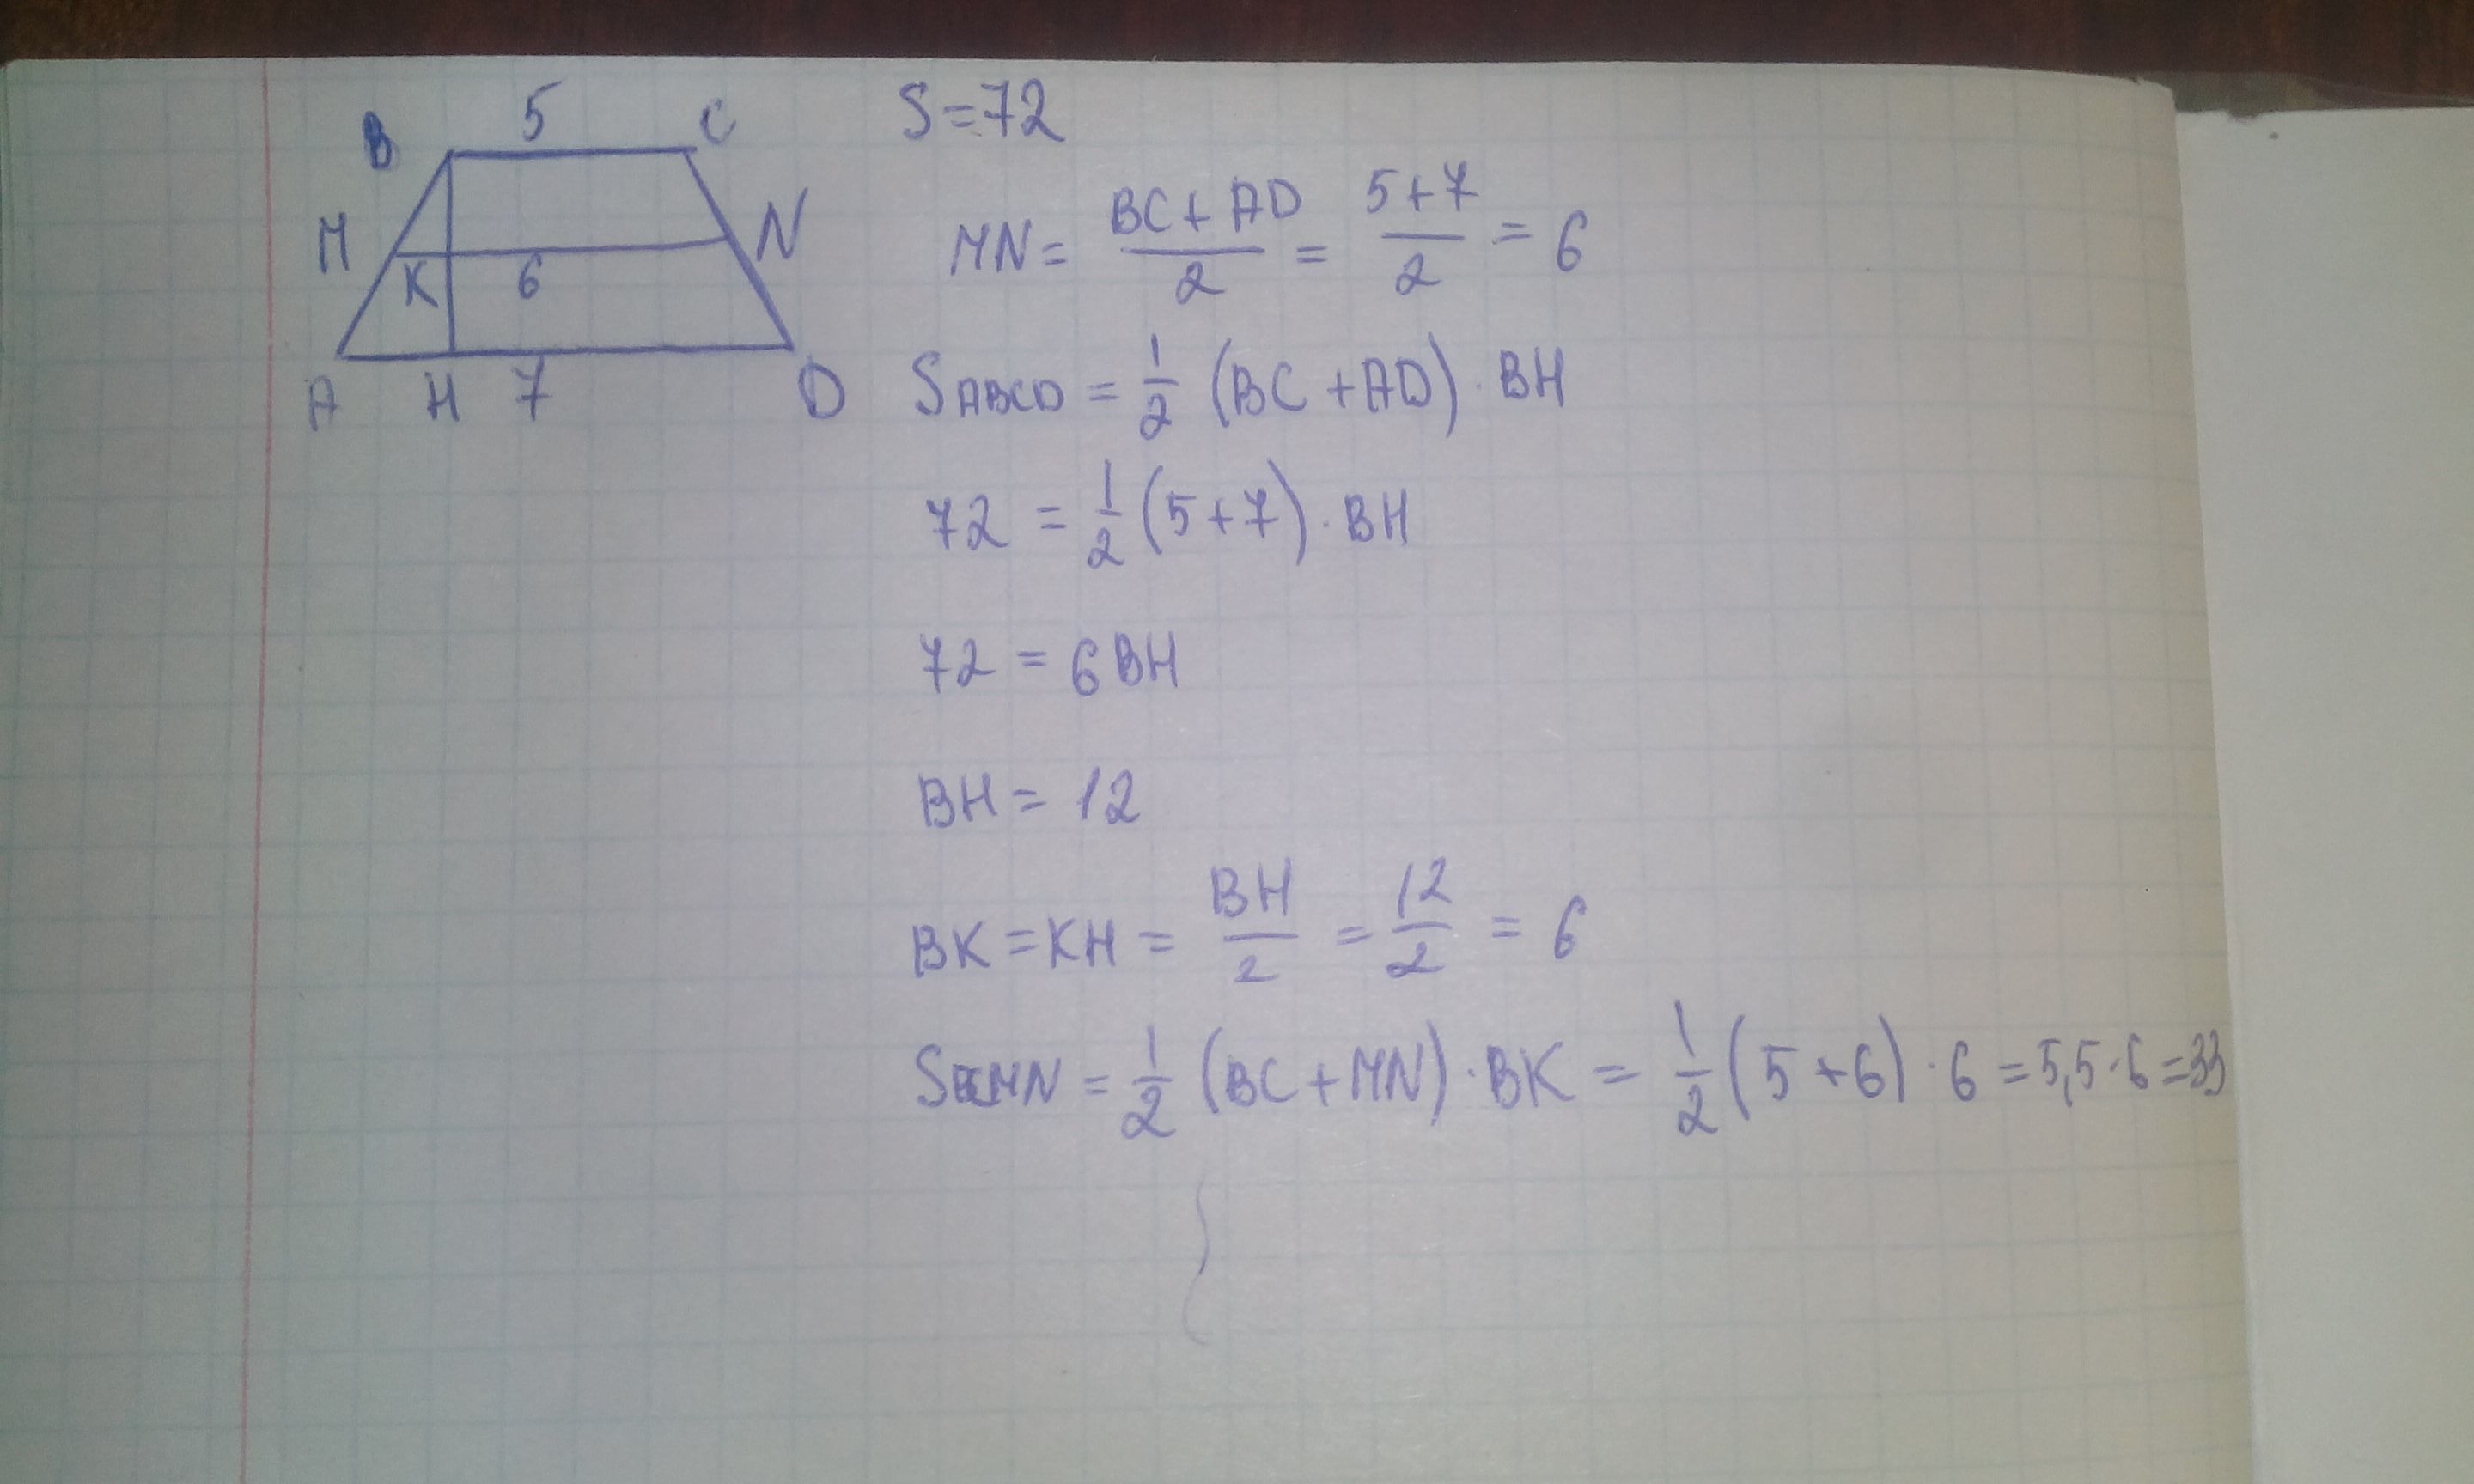 B 5 C
M N
K 6
A H 7 D
S=72
MN = \frac{BC+AD}{2} = \frac{5+7}{2} = 6
S_{ABCD} = \frac{1}{2} (BC+AD) · BH
72 = \frac{1}{2} (5+7) · BH
72 = 6BH
BH = 12
BK = KH = \frac{BH}{2} = \frac{12}{2} = 6
S_{BCMN} = \frac{1}{2} (BC+MN) · BK = \frac{1}{2} (5+6) · 6 = 5,5 · 6 = 33